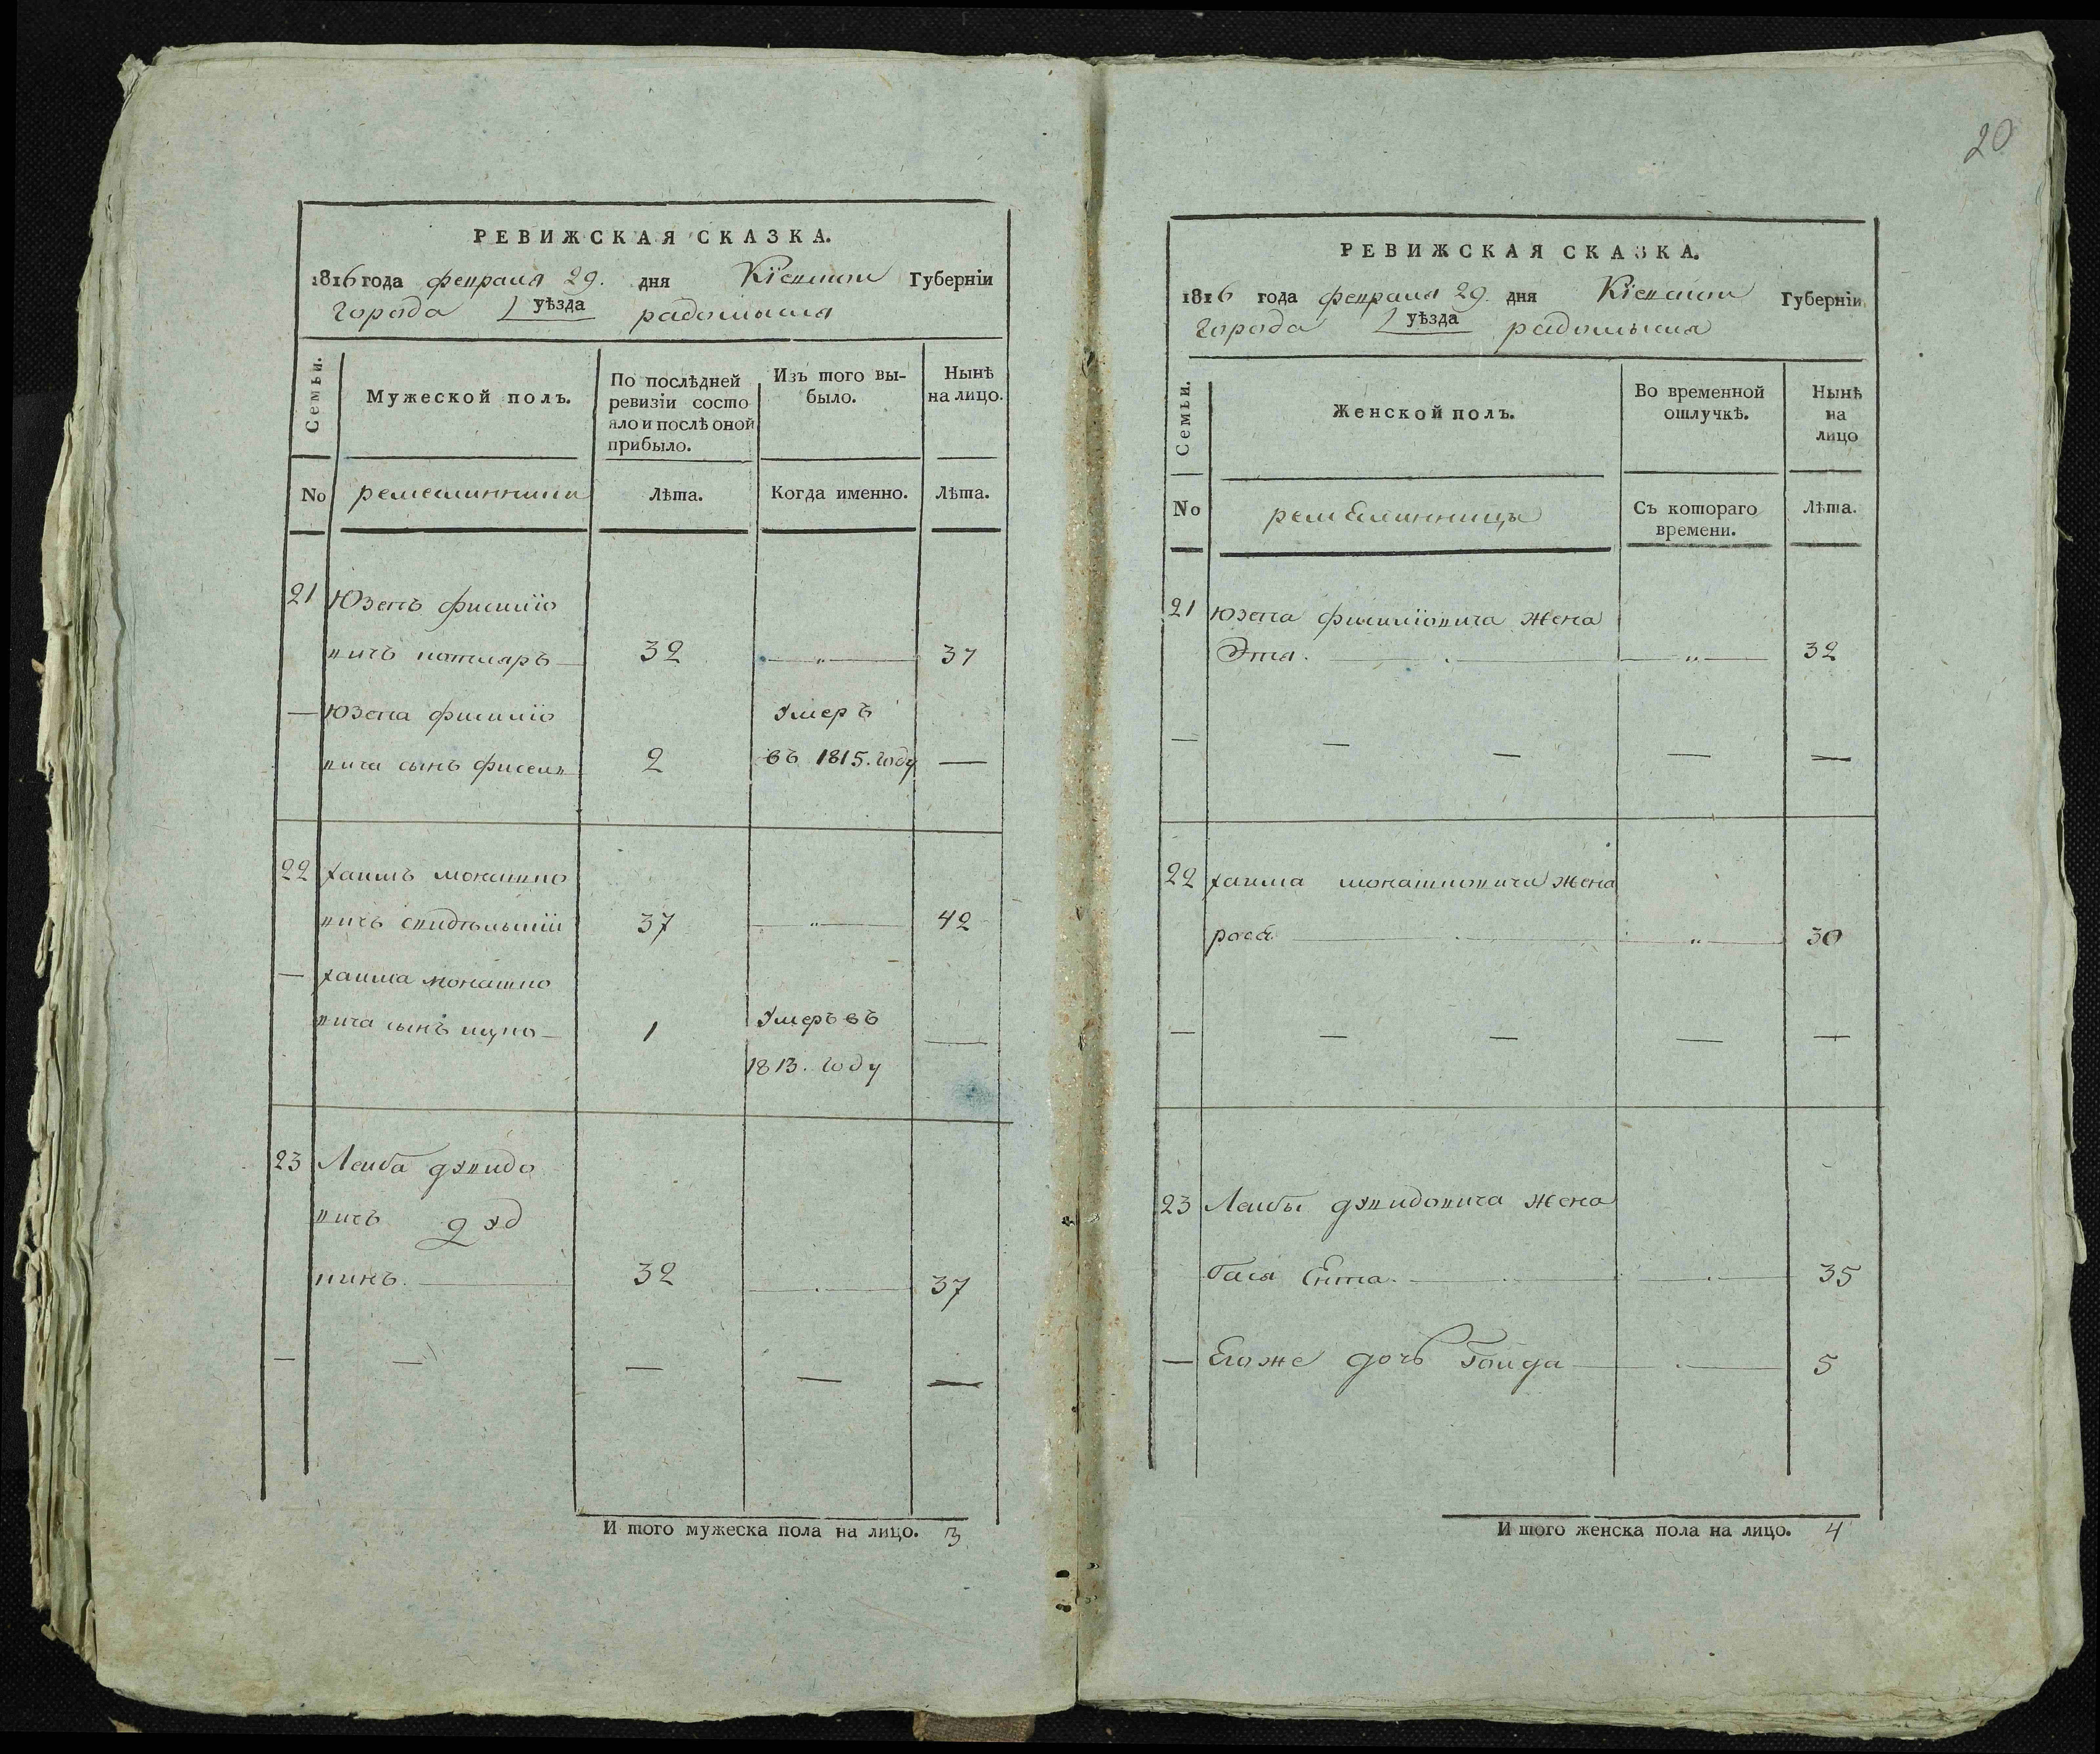 20
РЕВИЖСКАЯ СКАЗКА.
1816 года февраля 29. дня Кіевской Губерніи
города уѣзда радомысля
Семьи.
Мужеской полъ.
По послѣдней ревизіи состо
яло и послѣ оной прибыло.
Изъ того вы-
было.
Нынѣ
на лицо.
No ремеслинники Лѣта. Когда именно. Лѣта.
21 Юзепъ фишліо
вичъ котляръ 32 " 37
— Юзепа фишліо Умеръ
вича сынъ фишель 2 въ 1815. году —
22 хаимъ мошко
вичъ 37 " 42
— хаима мошко
вича сынъ 1 Умеръ въ —
1813. году
23 Леиба дувидо
вичъ дуд
никъ. 32 37
— — — — —
И того мужеска пола на лицо. 3
РЕВИЖСКАЯ СКАЗКА.
1816 года февраля 29. дня Кіевской Губерніи
города уѣзда радомысля
Семьи.
Женской полъ.
Во временной
отлучкѣ.
Нынѣ
на
лицо
No ремеслинницы Съ котораго
времени.
Лѣта.
21 Юзепа фишліовича жена
Этя. " 32
— — — — —
22 хаима жена
рося " 30
— — — — —
23 Леибы дувидовича жена
Бася Ента. 35
— Егоже дочь 5
И того женска пола на лицо. 4